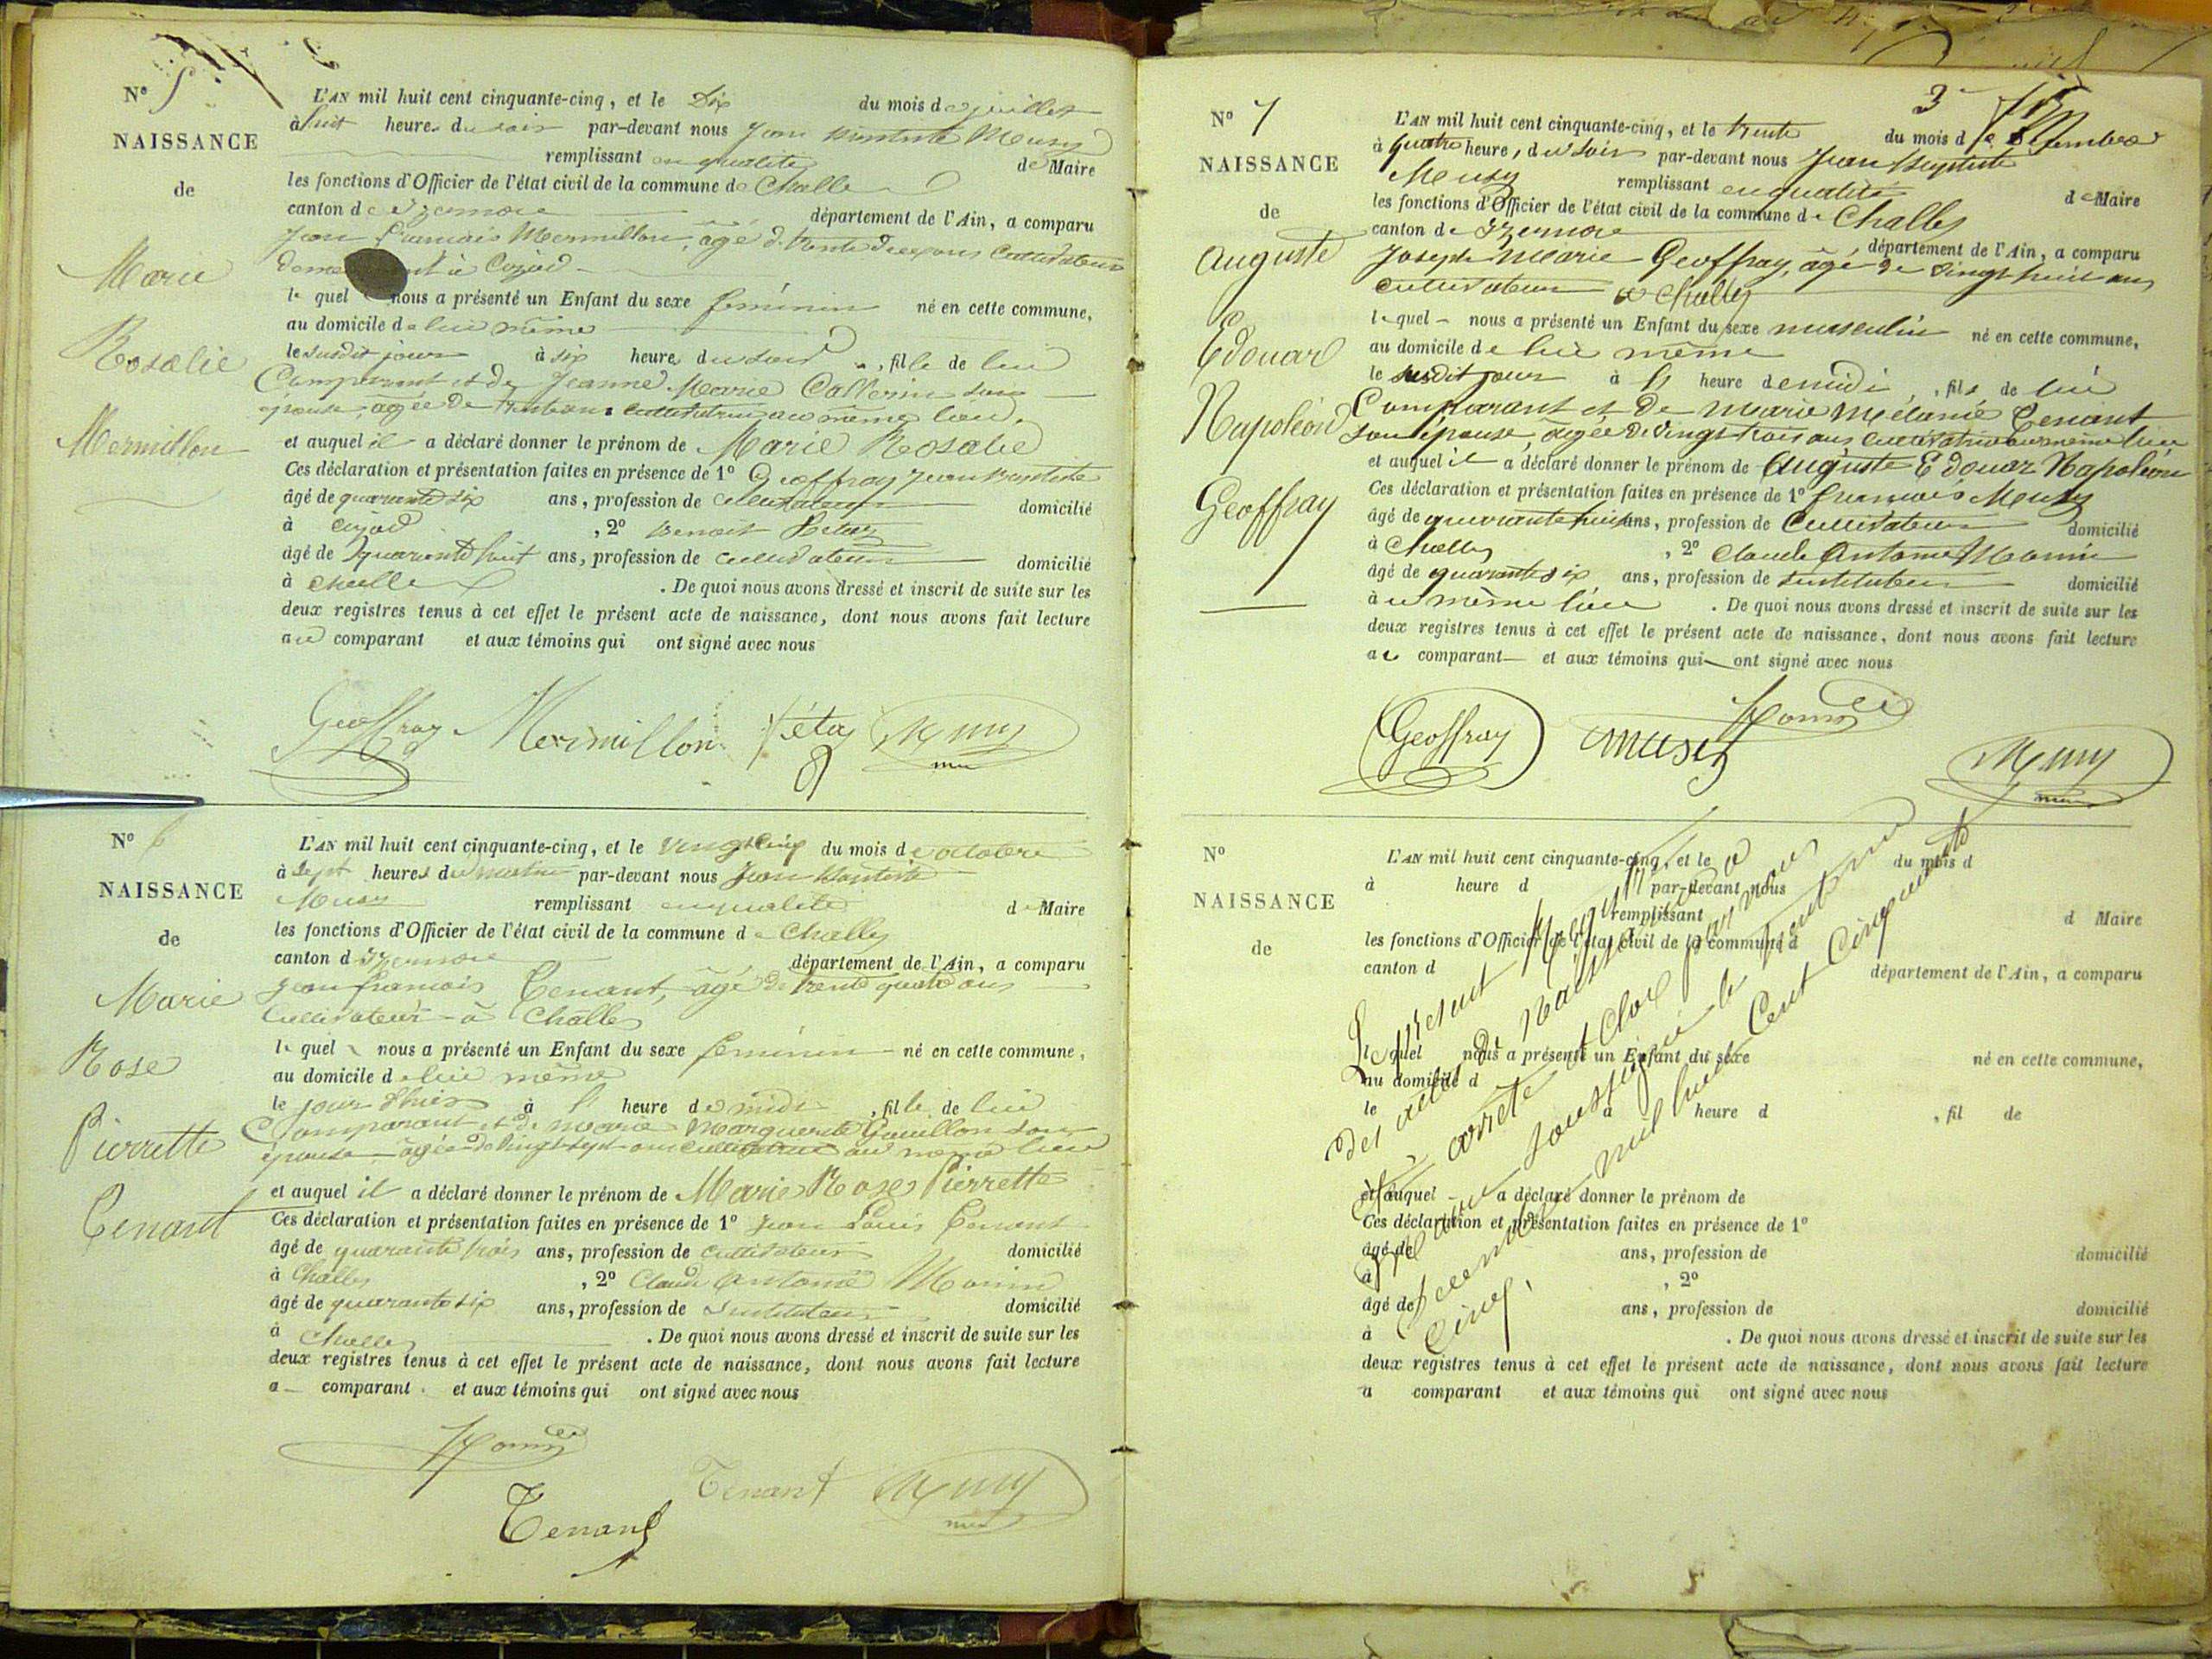 N° 5
NAISSANCE
de
Marie
Rosalie
Mermillon
L'AN mil huit cent cinquante-cinq, et le Dix du mois de juillet
à huit heures du soir par-devant nous Jean Baptiste Musy
remplissant en qualité de Maire
les fonctions d'Officier de l'état civil de la commune de Challe
canton d'Izernore département de l'Ain, a comparu
Jean francois Mermillon, âgé de trente ans Cultivateur
à
le quel nous a présenté un Enfant du sexe feminin né en cette commune,
au domicile de lui même
le susdit jour à six heures du soir, fille de lui
Comparant et de Jeanne Marie son
épouse, agée de cultivatrice au même lieu.
et auquel il a déclaré donner le prénom de Marie Rosalie
Ces déclaration et présentation faites en présence de 1° Geoffray Jean Baptiste
âgé de quarante six ans, profession de cultivateur domicilié
à , 2° Benoit
âgé de quarante huit ans, profession de cultivateur domicilié
à challe . De quoi nous avons dressé et inscrit de suite sur les
deux registres tenus à cet effet le présent acte de naissance, dont nous avons fait lecture
au comparant et aux témoins qui ont signé avec nous
Geoffray Mermillon Musy
N° 6
NAISSANCE
de
Marie
Rose
Pierrette
Tenant
L'AN mil huit cent cinquante-cinq, et le vingt cinq du mois d'octobre
à sept heures du matin par-devant nous Jean Baptiste
Musy remplissant en qualité de Maire
les fonctions d'Officier de l'état civil de la commune de Challes
canton d'Izernore département de l'Ain, a comparu
Jean francois Tenant, âgé de trente quatre ans
Cultivateur à Challes
le quel nous a présenté un Enfant du sexe feminin né en cette commune,
au domicile de lui même
le jour d'hier à heure de midi, fille de lui
Comparant et de marie Marguerite Gouillon son
épouse agée de vingt sept ans cultivatrice au même lieu
et auquel il a déclaré donner le prénom de Marie Rose Pierrette
Ces déclaration et présentation faites en présence de 1° Jean Louis Tenant
âgé de quarante trois ans, profession de cultivateur domicilié
à Challes , 2° Claude Antoine Monin
âgé de quarante six ans, profession de Instituteur domicilié
à Challes . De quoi nous avons dressé et inscrit de suite sur les
deux registres tenus à cet effet le présent acte de naissance, dont nous avons fait lecture
a comparant et aux témoins qui ont signé avec nous
Monin
Tenant Musy
Tenant
3
N° 7
NAISSANCE
de
Auguste
Edouar
Napoléon
Geoffray
L'AN mil huit cent cinquante-cinq, et le trente du mois de
à quatre heure, du soir par-devant nous Jean Baptiste
Musy remplissant en qualité de Maire
les fonctions d'Officier de l'état civil de la commune de Challes
canton de Izernore département de l'Ain, a comparu
Joseph Marie Geoffray, âgé de vingt huit ans
cultivateur à Challes
le quel nous a présenté un Enfant du sexe masculin né en cette commune,
au domicile de lui même
le susdit jour à heure de midi, fils de lui
Comparant et de Marie Mélanie Tenant
son épouse, agée de vingt trois ans cultivatrice au même lieu
et auquel il a déclaré donner le prénom de Auguste Edouar Napoléon
Ces déclaration et présentation faites en présence de 1° francois Musy
âgé de quarante huit ans, profession de Cultivateur domicilié
à Challes , 2° Claude Antoine Monin
âgé de quarante six ans, profession de Instituteur domicilié
à u même lieu . De quoi nous avons dressé et inscrit de suite sur les
deux registres tenus à cet effet le présent acte de naissance, dont nous avons fait lecture
au comparant et aux témoins qui ont signé avec nous
Geoffray musy Monin Musy
N°
NAISSANCE
de
L'AN mil huit cent cinquante-cinq, et le du mois d
à heure d par-devant nous
remplissant d Maire
les fonctions d'Officier de l'état civil de la commune d
canton d département de l'Ain, a comparu
le quel nous a présenté un Enfant du sexe né en cette commune,
au domicile d
le à heure d , fil de
et auquel a déclaré donner le prénom de
Ces déclaration et présentation faites en présence de 1°
âgé de ans, profession de domicilié
à , 2°
âgé de ans, profession de domicilié
à . De quoi nous avons dressé et inscrit de suite sur les
deux registres tenus à cet effet le présent acte de naissance, dont nous avons fait lecture
a comparant et aux témoins qui ont signé avec nous
Le présent Registre
des actes de Naissance a
été arrêté et clos par nous
maire soussigné le trente un
Décembre mil huit Cent Cinquante
Cinq.